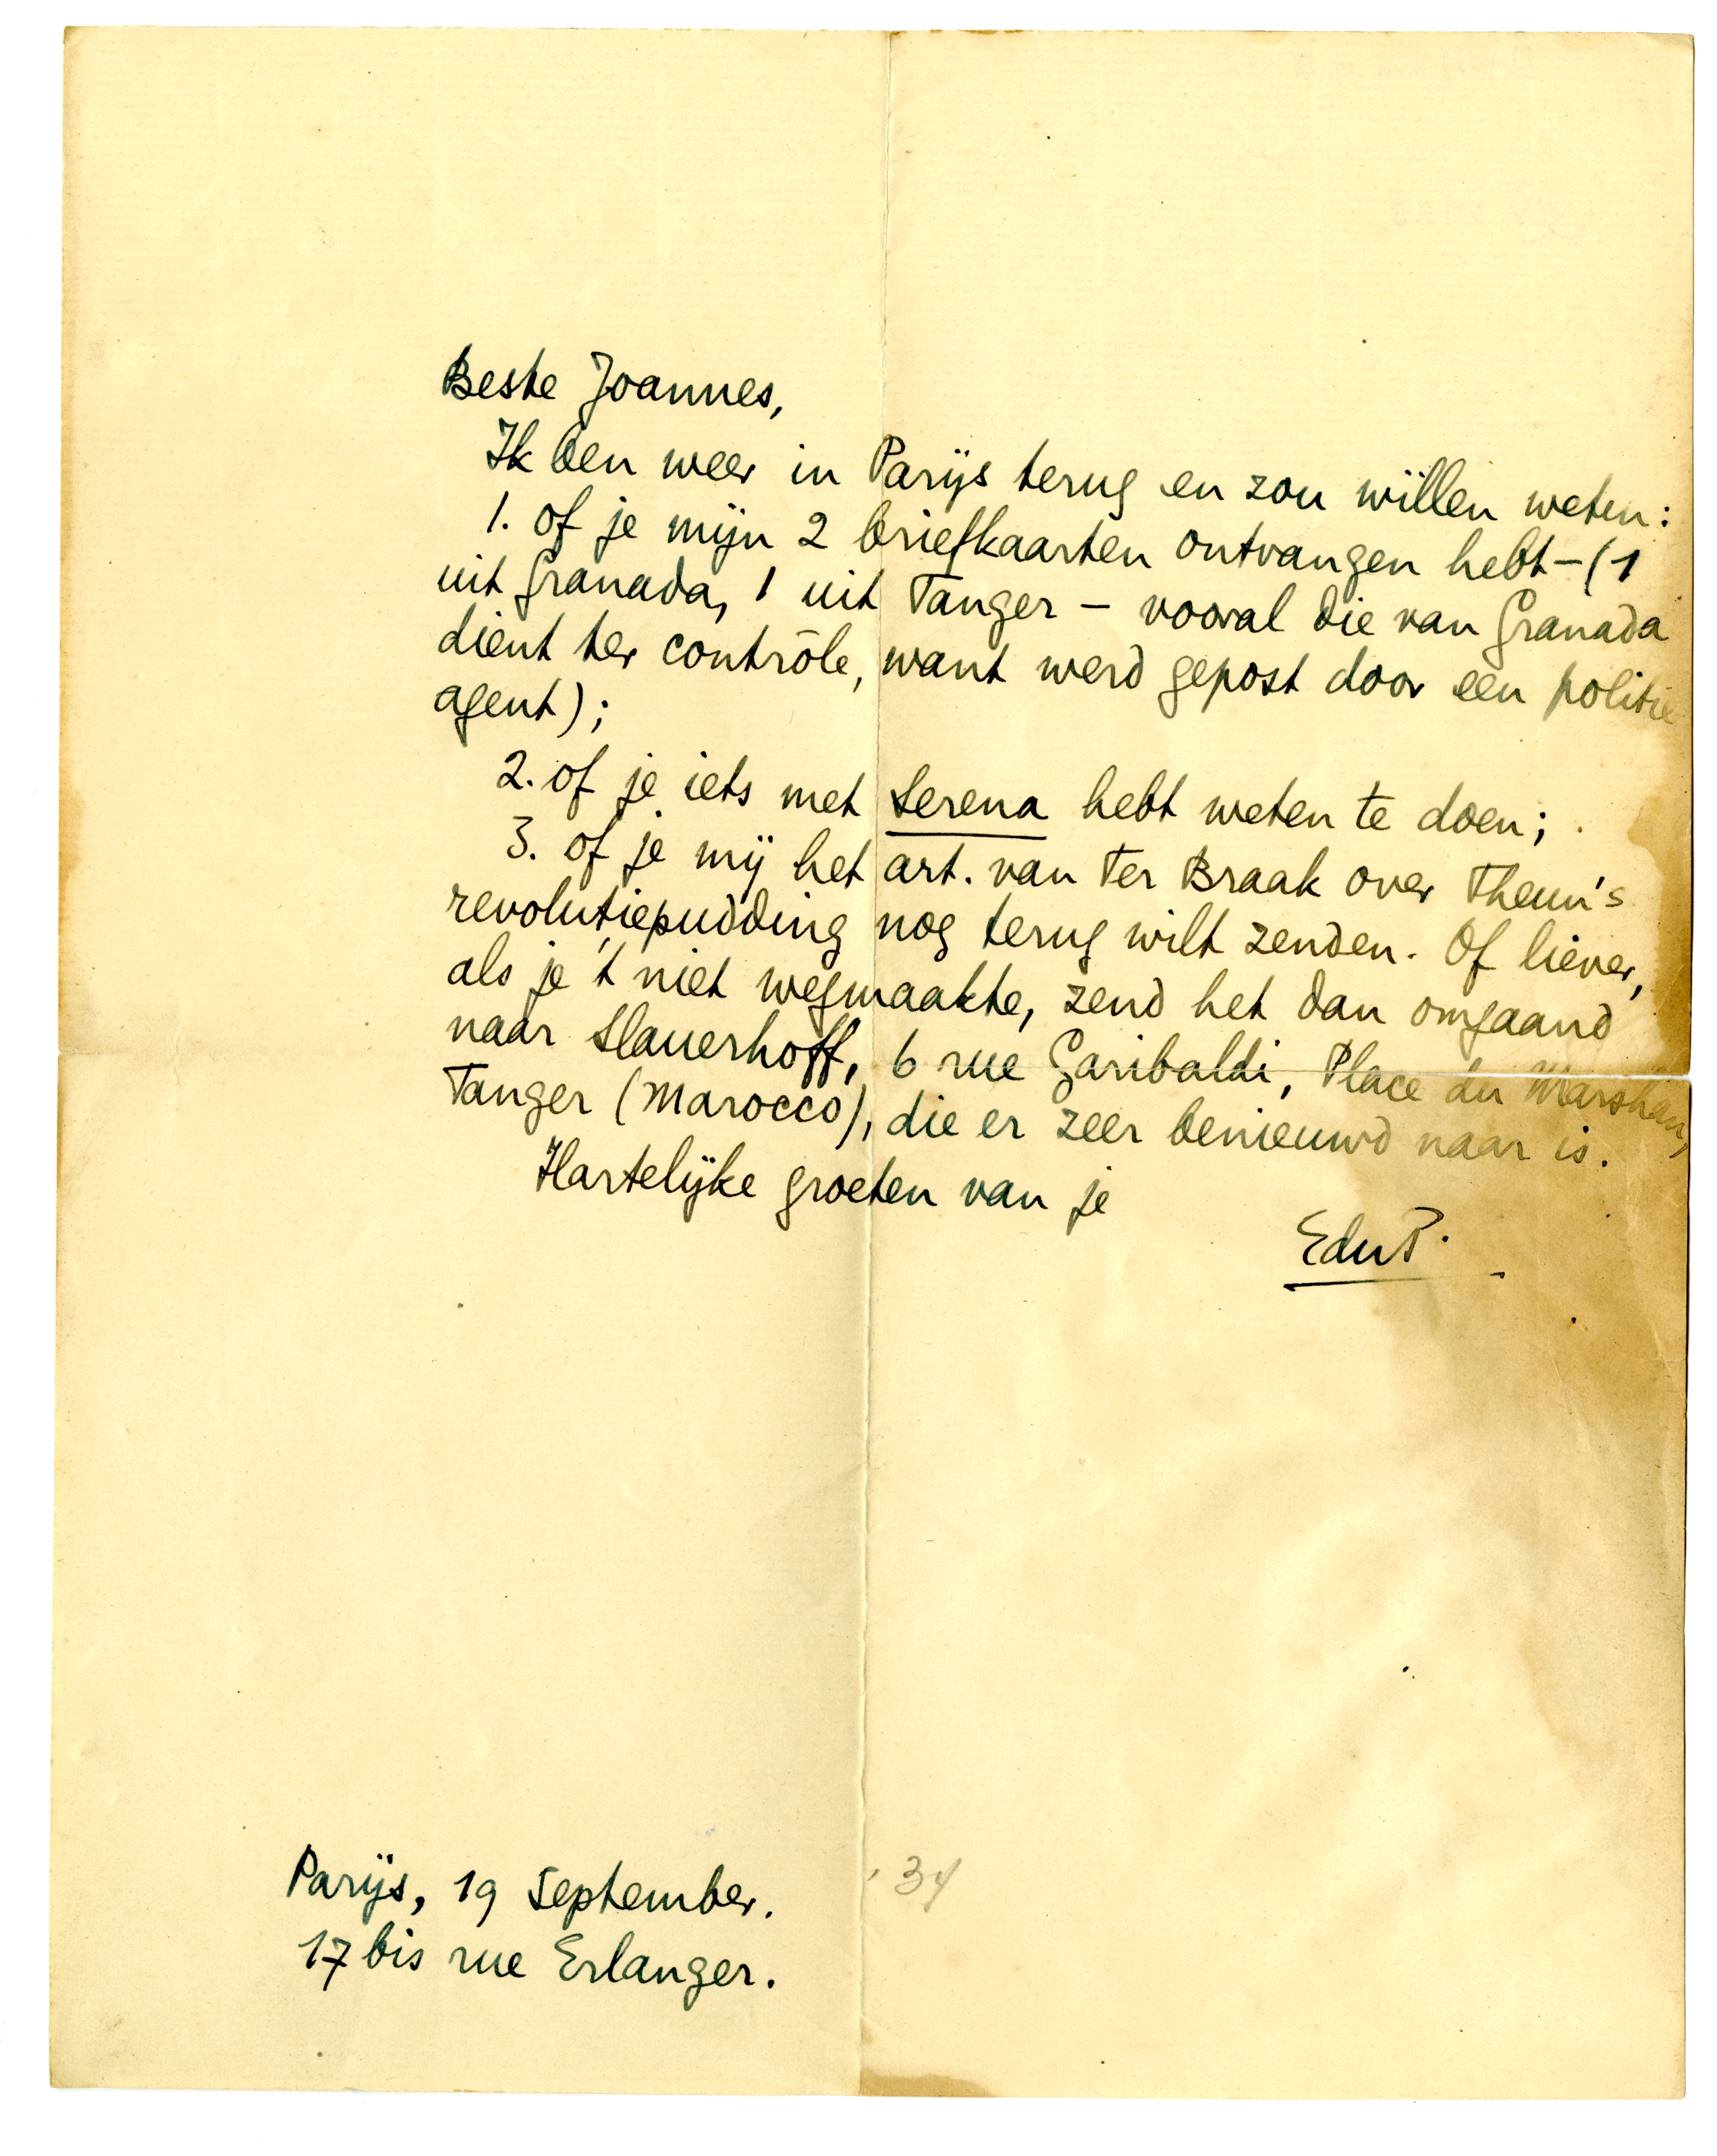 Beste Joannes,
Ik ben weer in Parijs terug en zou willen weten:
1. of je mijn 2 briefkaarten ontvangen hebt – (1
uit Granada, 1 uit Tanger – vooral die van Granada
dient ter contrôle, want werd gepost door een politie
agent);
2. of je iets met Serena hebt weten te doen;
3. of je mij het art. van Ter Braak over Theun's
revolutiepudding nog terug wilt zenden. Of liever,
als je 't niet wegmaakte, zend het dan omgaand
naar Slauerhoff, 6 rue Garibaldi, Place du Marshan,
Tanger (Marocco), die er zeer benieuwd naar is.
Hartelijke groeten van je
EduP.
Parijs, 19 September. '34
17 bis rue Erlanger.